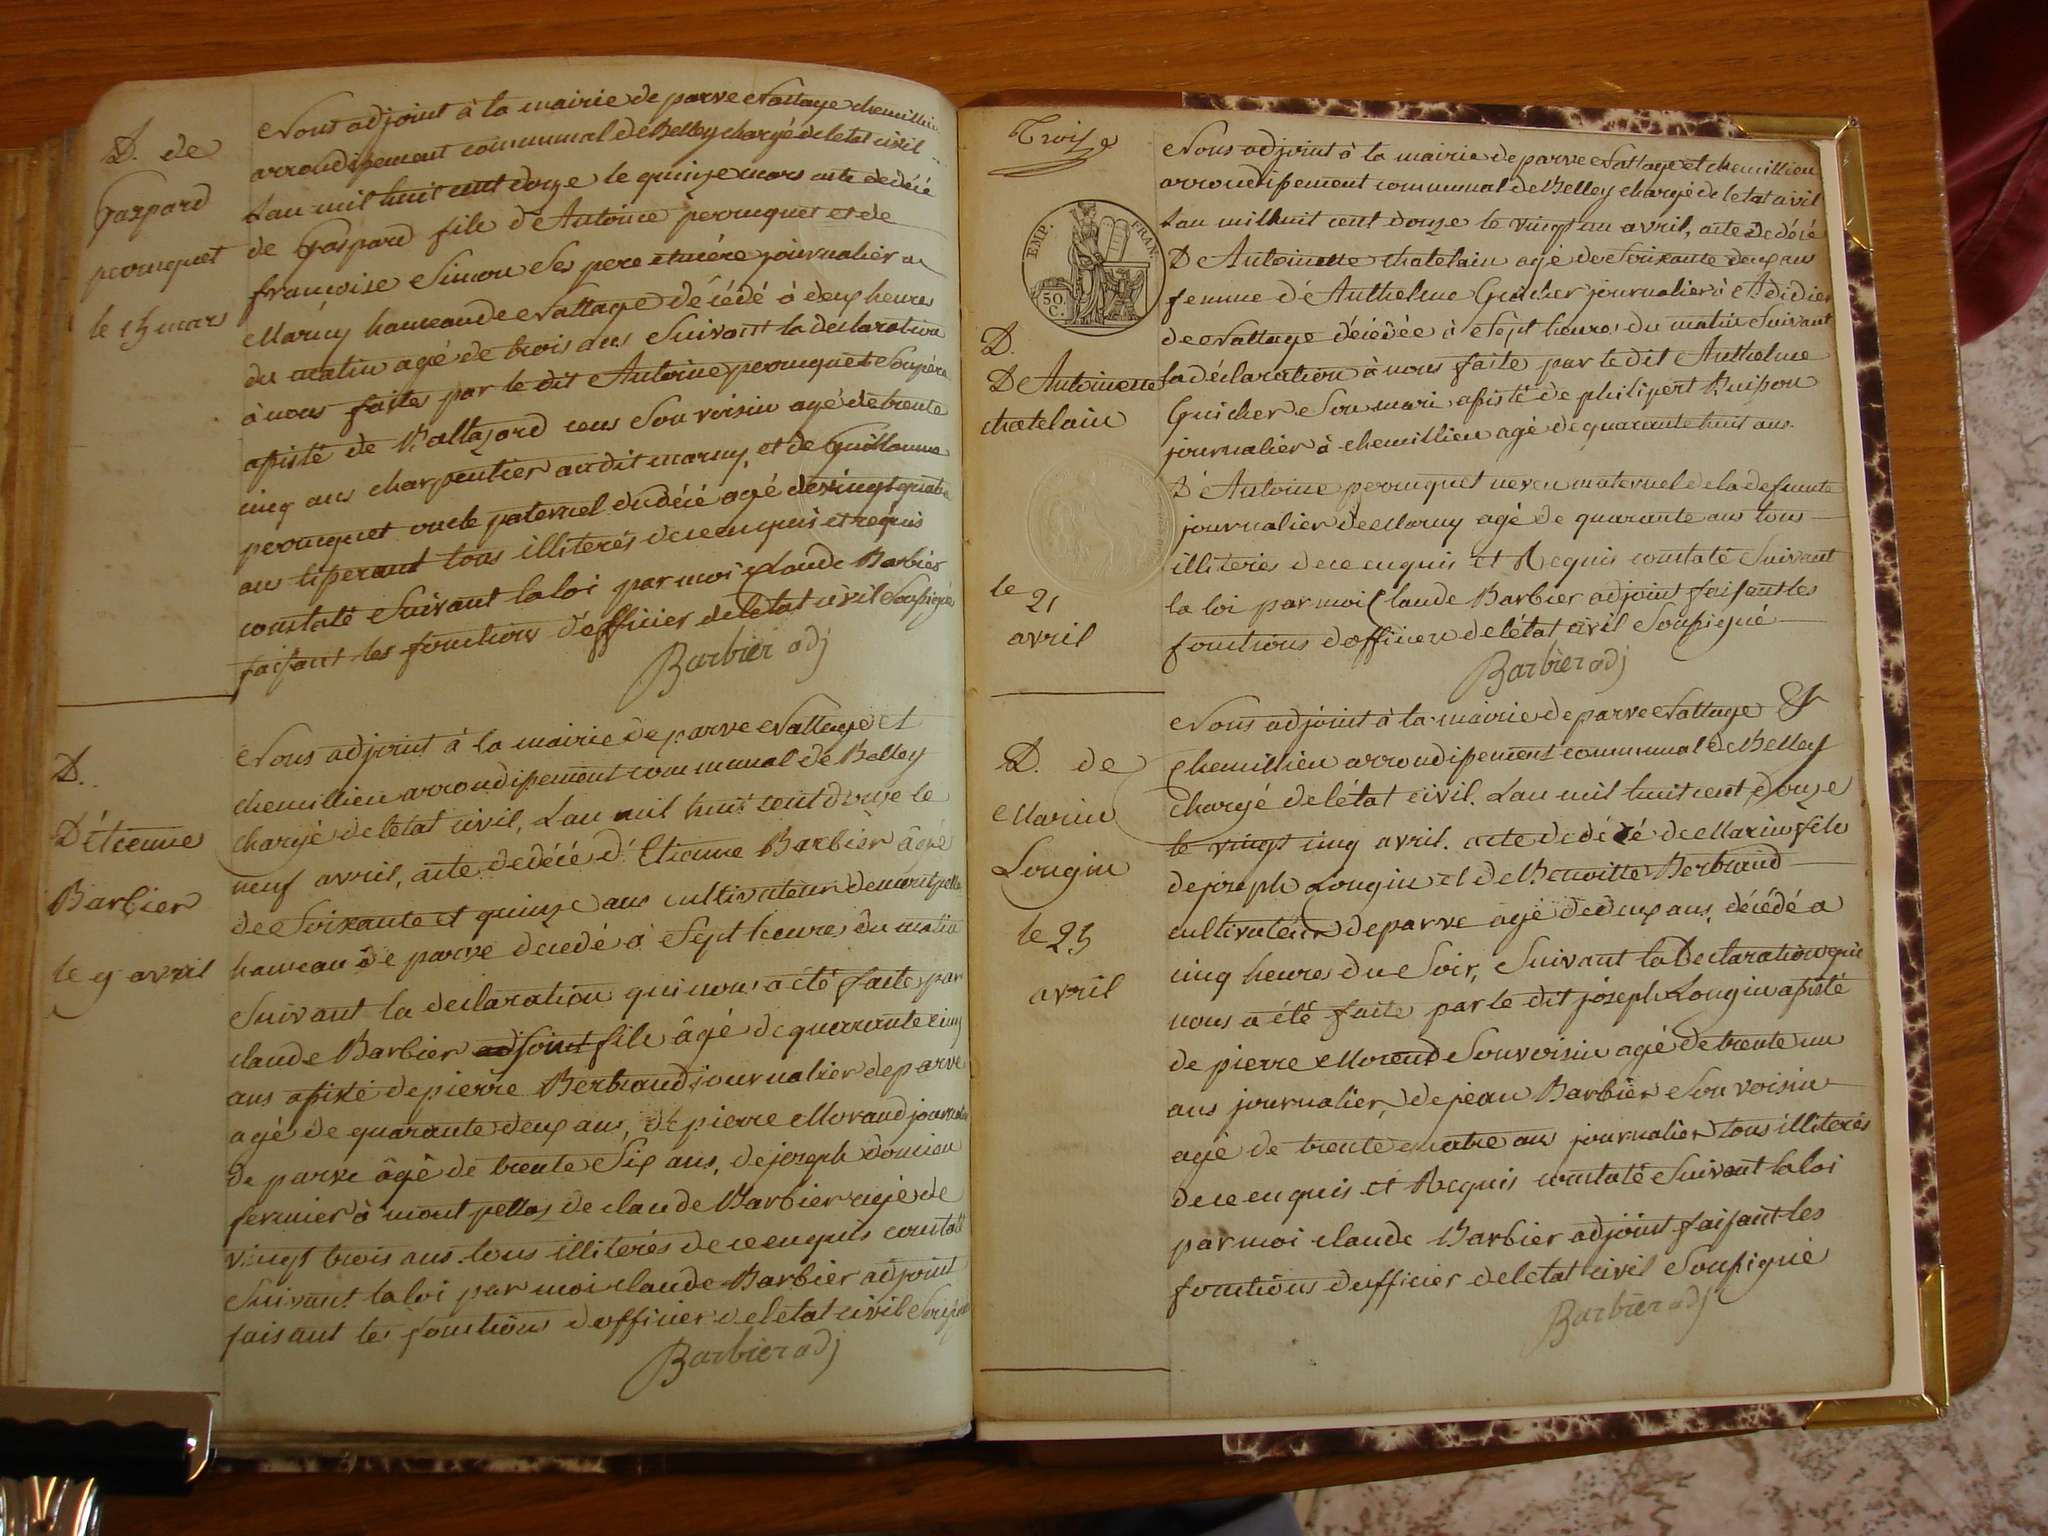 D. de
Gaspard
perruquet
le 15 mars
Nous adjoint à la mairie de parve Nattage chemillieu
arrondissement communal de Belley chargé de letat civil
Lan mil huit cent douze le quinze mars acte de décé
de Gaspard fils d'Antoine perruquet et de
francoise Simon Ses pere et mére journalier a
Marny hameau de Nattage décédé à deux heures
du matin agé de trois ans Suivant la déclaration
à nous faite par le dit Antoine perruquet Son pére
assisté de Baltazard Son voisin agé de trente
cinq ans charpentier au dit marny, et de Guillaume
perruquet oncle paternel du décé agé de vingt quatre
ans tisserant tous illiterés de ce enquis et requis
constaté Suivant la loi par moi Claude Barbier
faisant les fonctions d'officier de letat civil Soussigné
Barbier adj
D.
D'étienne
Barbier
le 9 avril
Nous adjoint à la mairie de parve Nattage et
chemillieu arrondissement communal de Belley
chargé de létat civil, Lan mil huit cent douze le
neuf avril, acte de décé d'Etienne Barbier âgé
de Soixante et quinze ans cultivateur de montpellaz
hameau de parve decedé à Sept heures du matin
Suivant la déclaration qui nous a été faite par
claude Barbier adjoint fils âgé de quarante cinq
ans assisté de pierre Bertrand journalier de parve
agé de quarante deux ans, de pierre Morand journalier
de parve âgé de trente Six ans, de joseph
fermier à montpellaz de claude Barbier agé de
vingt trois ans tous illiterés de ce enquis constaté
Suivant la loi par moi claude Barbier adjoint
faisant les fonctions d'officier de letat civil Soussigné
Barbier adj
Trois
EMP. FRAN.
50 C.
D.
D'Antoinette
chatelain
le 21
avril
Nous adjoint à la mairie de parve Nattage et chemillieu
arrondissement communal de Belley chargé de letat civil
Lan mil huit cent douze le vingt un avril, acte de décé
D'Antoinette chatelain agé de Soixante deux ans
femme d'Anthelme Guicher journalier à St didier
de Nattage décédée à Sept heures du matin Suivant
la déclaration à nous faite par le dit Anthelme
Guicher Son mari assisté de philipert
journalier à chemillieu agé de quarante huit ans.
D'Antoine perruquet neveu maternel de la defunte
journalier de Marny agé de quarante ans tous
illiterés de ce enquis et Requis constaté Suivant
la loi par moi Claude Barbier adjoint faisant les
fonctions d'officier de létat civil Soussigné
Barbier adj
D. de
Marin
Longin
le 25
avril
Nous adjoint à la mairie de parve Nattage &
Chemillieu arrondissement communal de Belley
chargé de létat civil. Lan mil huit cent douze
le vingt cinq avril. acte de décé de Marin fils
de joseph Longin et de Benoitte Bertrand
cultivateur de parve agé de deux ans, décédé a
cinq heures du Soir, Suivant la Declaration qui
nous a été faite par le dit joseph Longin assisté
de pierre Morend Son voisin agé de trente un
ans journalier, de jean Barbier Son voisin
agé de trente quatre ans journalier tous illiterés
de ce enquis et Requis constaté Suivant la loi
par moi claude Barbier adjoint faisant les
fonctions d'officier de letat civil Soussigné
Barbier adj